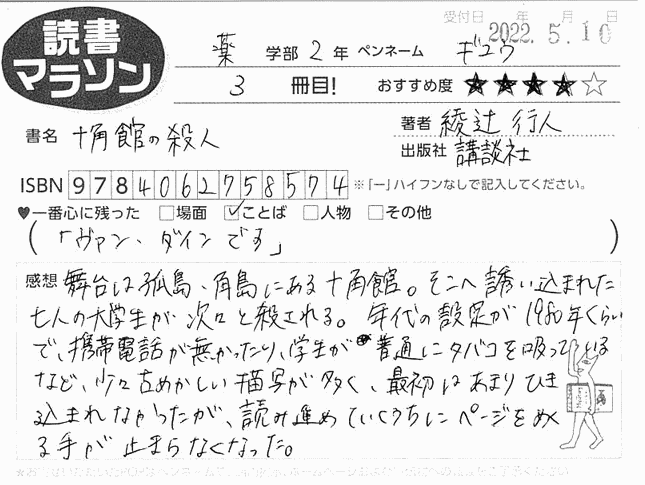 読書
マラソン
受付日 年 月 日
2022. 5. 10
薬 学部 2 年 ペンネーム ギュウ
3 冊目! おすすめ度 ★★★★☆
書名 十角館の殺人
著者 綾辻 行人
出版社 講談社
ISBN 9784062758574 ※「ー」ハイフンなしで記入してください。
♥一番心に残った □場面 ☑ことば □人物 □その他
(「ヴァン・ダインです」)
感想 舞台は孤島、角島にある十角館。そこへ誘い込まれた
七人の大学生が次々と殺される。年代の設定が1980年くらい
で、携帯電話が無かったり、学生が普通にタバコを吸っている
など、少々古めかしい描写が多く、最初はあまりひき
込まれなかったが、読み進めていくうちにページをめく
る手が止まらなくなった。